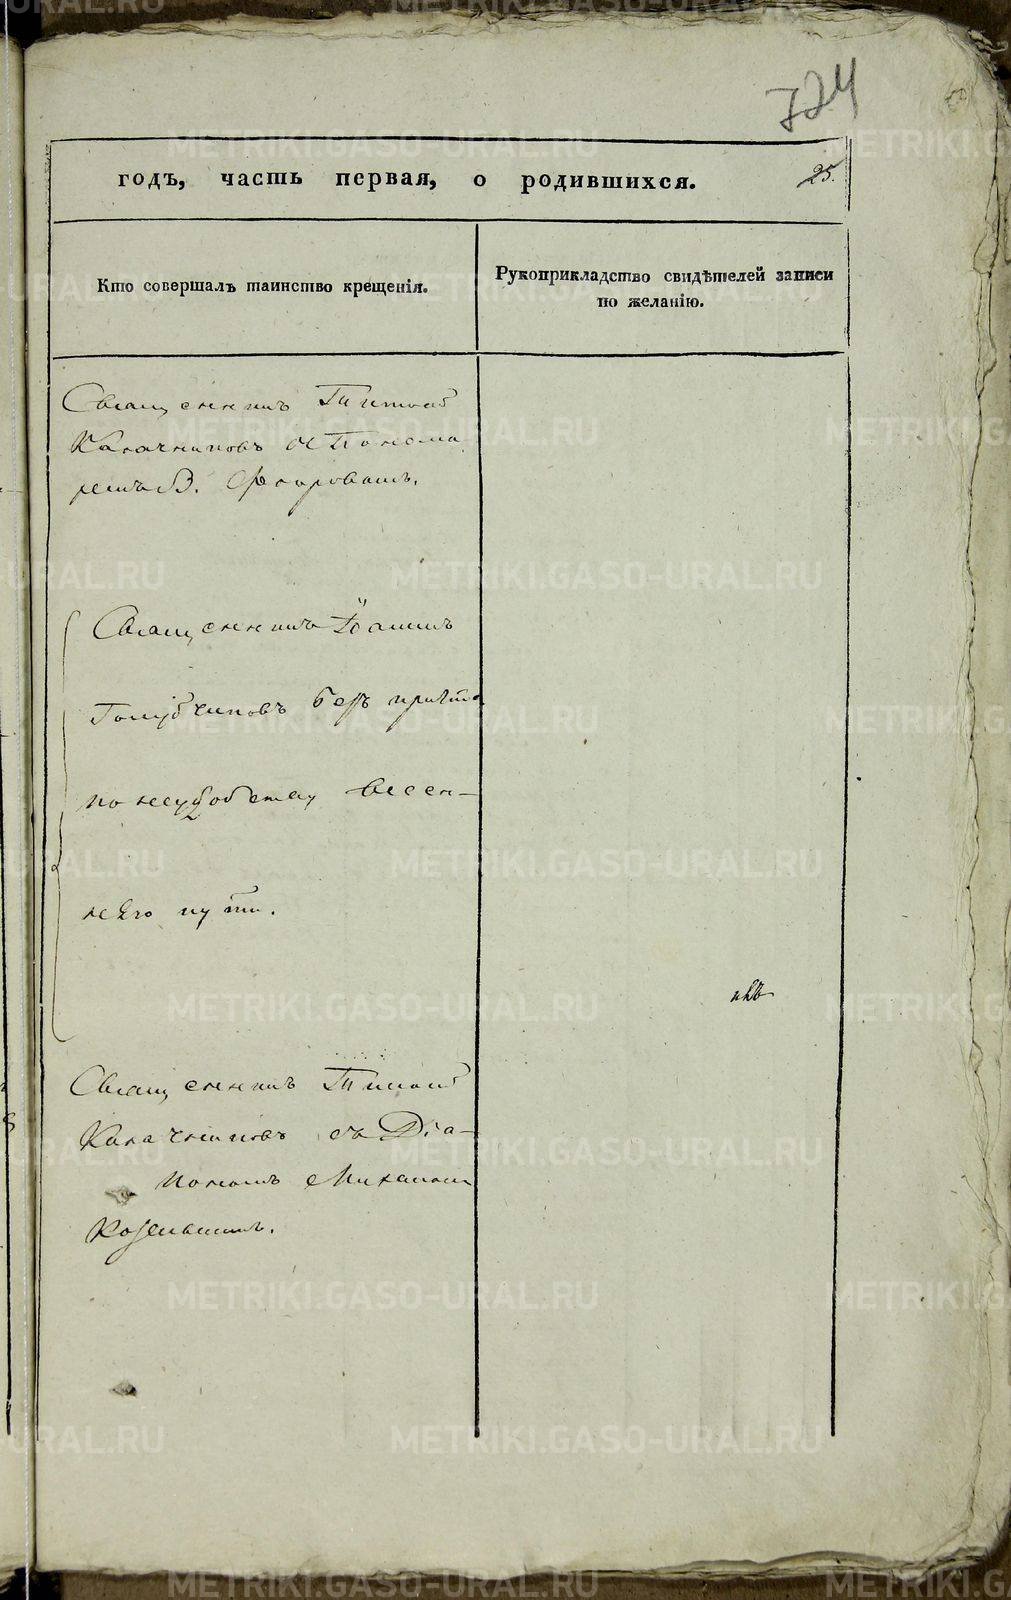 724
годъ, часть первая, о родившихся. 25.
Кто совершалъ таинство крещенія.
Рукоприкладство свидѣтелей записи
по желанію.
Священникъ
Калачниковъ Понома
ремъ В.
Священникъ Іоаннъ
Голубчиковъ безъ причта
по неудобству весен-
няго пути.
Священникъ
Калачниковъ съ Діа-
кономъ Михаиломъ
METRIKI.GASO-URAL.RU